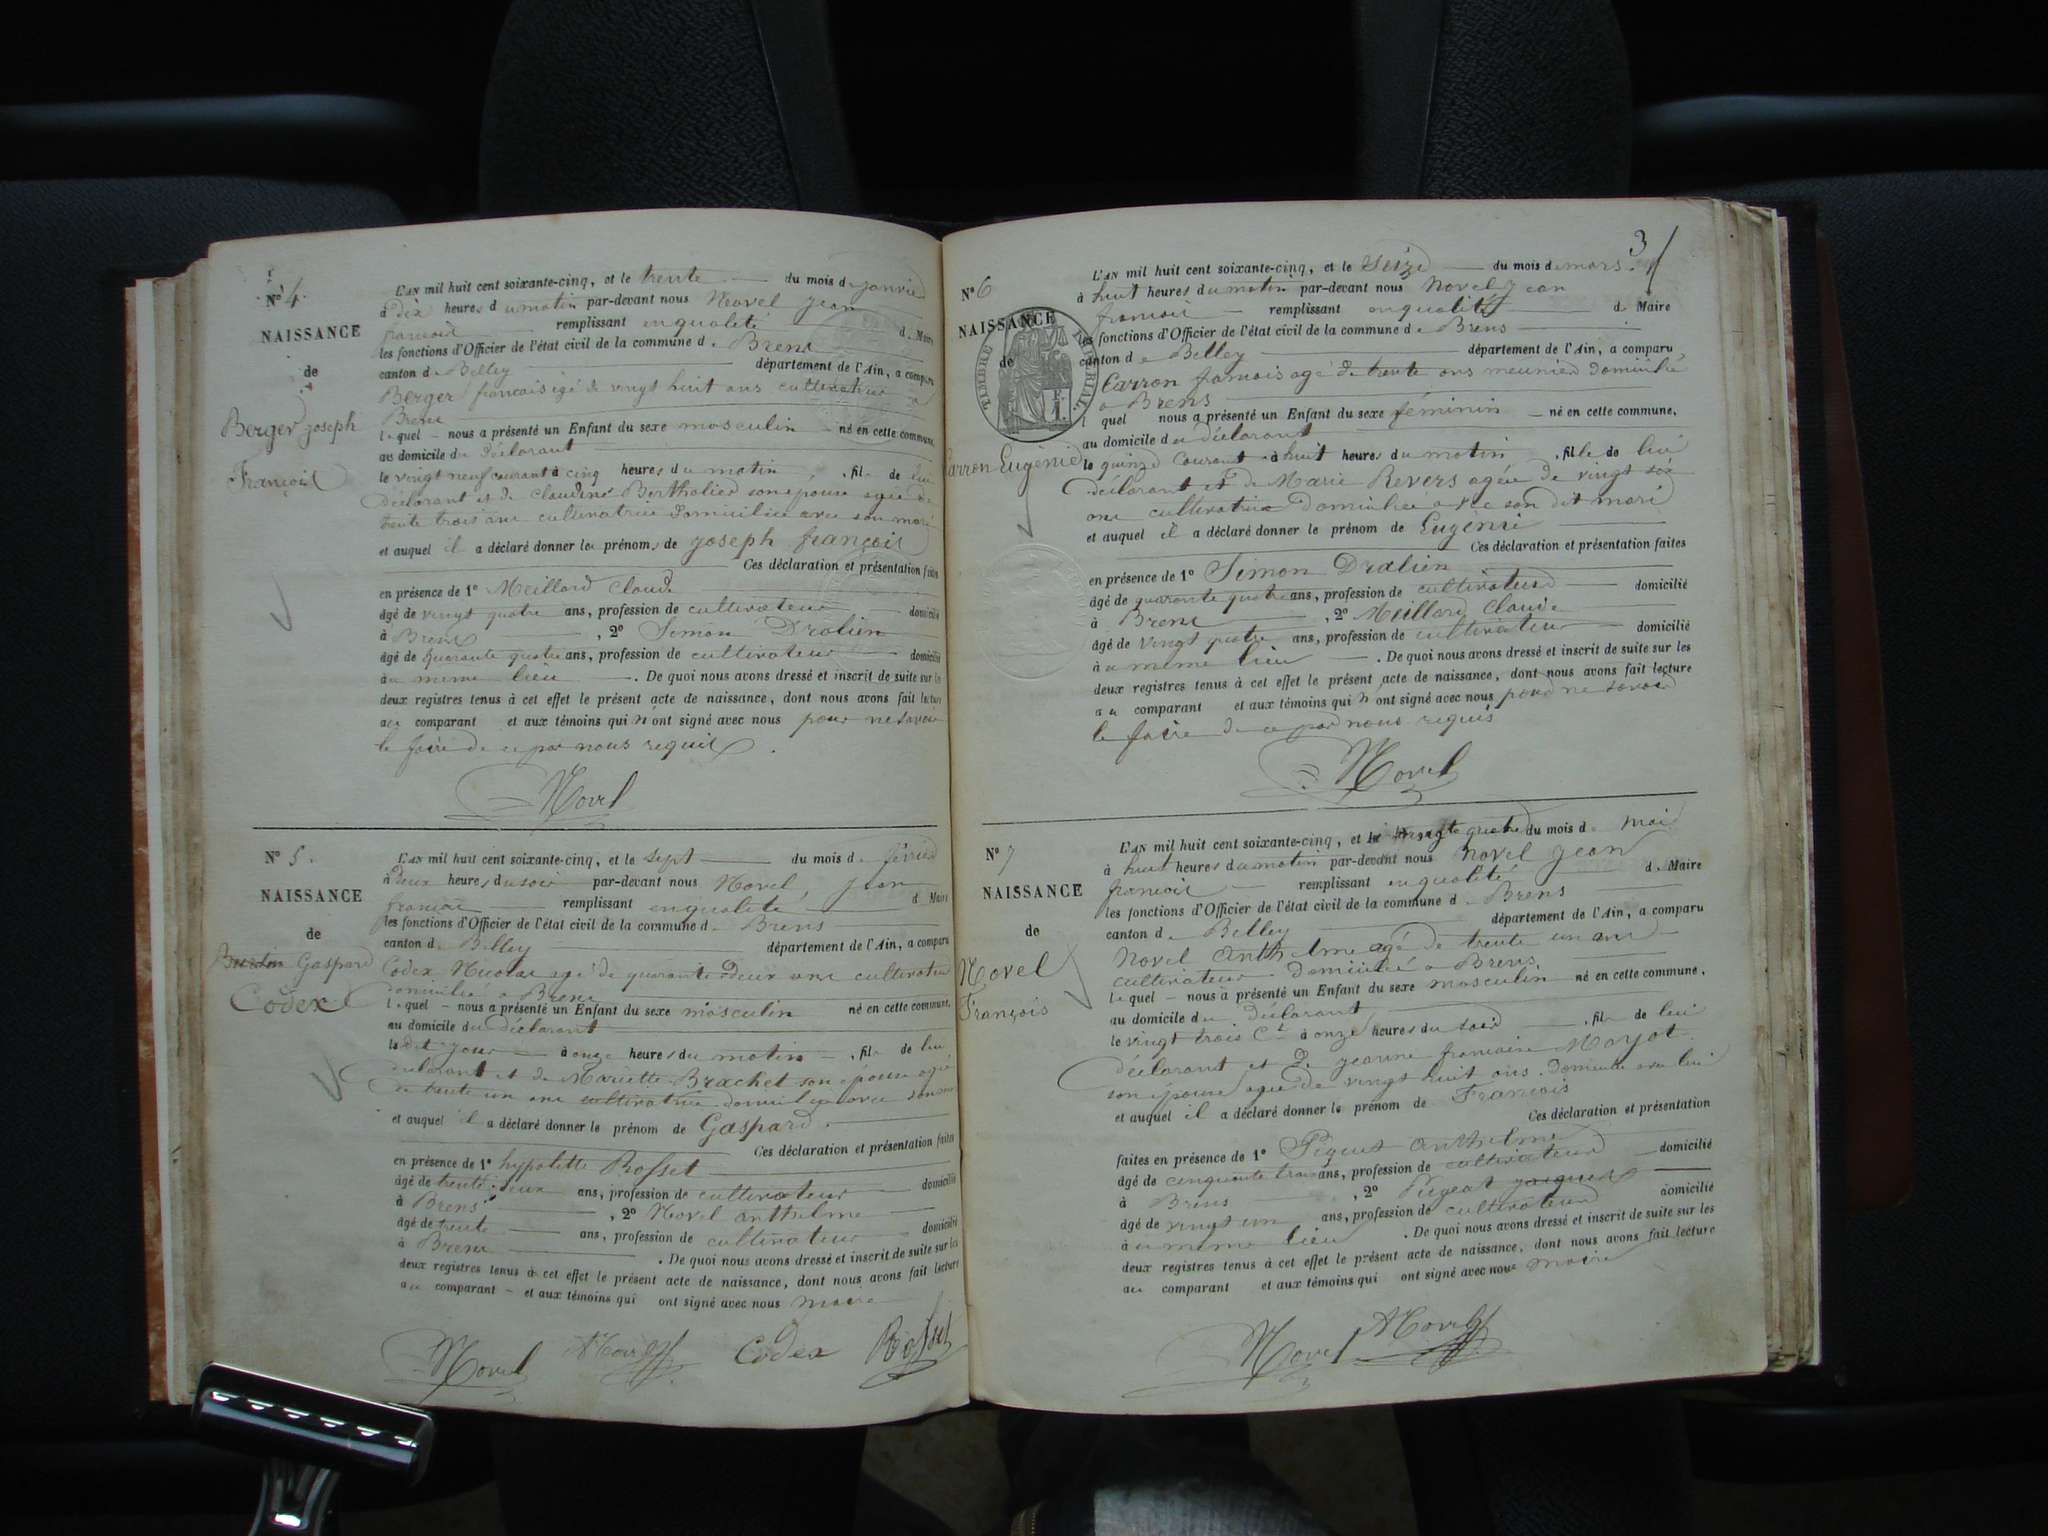 N° 4.
NAISSANCE
de
Berger Joseph
François
L'AN mil huit cent soixante-cinq, et le trente du mois de janvier
à dix heures du matin par-devant nous Novel Jean
francois remplissant en qualité de Maire
les fonctions d'Officier de l'état civil de la commune de Brens
canton de Belley département de l'Ain, a comparu
Berger francois agé de vingt huit ans cultivateur a
Brens
lequel nous a présenté un Enfant du sexe masculin né en cette commune,
au domicile du déclarant
le vingt neuf courant à cinq heures du matin, fils de lui
déclarant et de Claudine Bertholier son épouse agée de
trente trois ans cultivatrice domiciliée avec son mari
et auquel il a déclaré donner les prénoms de joseph françois
Ces déclaration et présentation faites
en présence de 1° Meillard Claude
âgé de vingt quatre ans, profession de cultivateur domicilié
à Brens, 2° Simon Dralien
âgé de quarante quatre ans, profession de cultivateur domicilié
au meme lieu. De quoi nous avons dressé et inscrit de suite sur les
deux registres tenus à cet effet le présent acte de naissance, dont nous avons fait lecture
au comparant et aux témoins qui n'ont signé avec nous pour ne savoir
le faire de ce par nous requis.
Novel
N° 5.
NAISSANCE
de
Gaspard
Codex
L'AN mil huit cent soixante-cinq, et le sept du mois de février
à deux heures du soir par-devant nous Novel, Jean
francois remplissant en qualité d Maire
les fonctions d'Officier de l'état civil de la commune de Brens
canton de Belley département de l'Ain, a comparu
Codex Nicolas agé de quarante deux ans cultivateur
domicilié a Brens
lequel nous a présenté un Enfant du sexe masculin né en cette commune,
au domicile du déclarant
le dit jour à onze heures du matin, fils de lui
déclarant et de Mariette Brachet son épouse agée
de trente un ans cultivatrice domiciliée avec son mari
et auquel il a déclaré donner le prénom de Gaspard.
Ces déclaration et présentation faites
en présence de 1° hypolitte Rosset
âgé de trente deux ans, profession de cultivateur domicilié
à Brens, 2° Novel anthelme
âgé de trente ans, profession de cultivateur domicilié
à Brens. De quoi nous avons dressé et inscrit de suite sur les
deux registres tenus à cet effet le présent acte de naissance, dont nous avons fait lecture
au comparant et aux témoins qui ont signé avec nous maire
Novel ANovel Codex Rosset
3
N° 6
NAISSANCE
de
TIMBRE IMPERIAL
Carron Eugénie
L'AN mil huit cent soixante-cinq, et le seize du mois de mars.
à huit heures du matin par-devant nous Novel Jean
francois remplissant en qualité de Maire
les fonctions d'Officier de l'état civil de la commune de Brens
canton de Belley département de l'Ain, a comparu
Carron francois agé de trente ans meunier domicilié
a Brens
lequel nous a présenté un Enfant du sexe féminin né en cette commune,
au domicile du déclarant
le quinze courant à huit heures du matin, fille de lui
déclarant et de Marie Revers agée de vingt six
ans cultivatrice domiciliée avec son dit mari
et auquel il a déclaré donner le prénom de Eugénie
Ces déclaration et présentation faites
en présence de 1° Simon Dralien
âgé de quarante quatre ans, profession de cultivateur domicilié
à Brens, 2° Meillard Claude
âgé de vingt quatre ans, profession de cultivateur domicilié
au meme lieu. De quoi nous avons dressé et inscrit de suite sur les
deux registres tenus à cet effet le présent acte de naissance, dont nous avons fait lecture
au comparant et aux témoins qui n'ont signé avec nous pour ne savoir
le faire de ce par nous requis
Novel
N° 7
NAISSANCE
de
Novel
François
L'AN mil huit cent soixante-cinq, et le vingt quatre du mois de mai
à huit heures du matin par-devant nous Novel Jean
francois remplissant en qualité de Maire
les fonctions d'Officier de l'état civil de la commune de Brens
canton de Belley département de l'Ain, a comparu
Novel anthelme agé de trente un ans
cultivateur domicilié a Brens
lequel nous a présenté un Enfant du sexe masculin né en cette commune,
au domicile du déclarant
le vingt trois Ct à onze heures du soir, fils de lui
déclarant et de jeanne francoise Moyot
son épouse agée de vingt huit ans. Domiciliée avec lui
et auquel il a déclaré donner le prénom de François
Ces déclaration et présentation
faites en présence de 1° anthelme
âgé de cinquante trois ans, profession de cultivateur domicilié
à Brens, 2° Pugeat jacques
âgé de vingt un ans, profession de cultivateur domicilié
au meme lieu. De quoi nous avons dressé et inscrit de suite sur les
deux registres tenus à cet effet le présent acte de naissance, dont nous avons fait lecture
au comparant et aux témoins qui ont signé avec nous maire
Novel ANovel